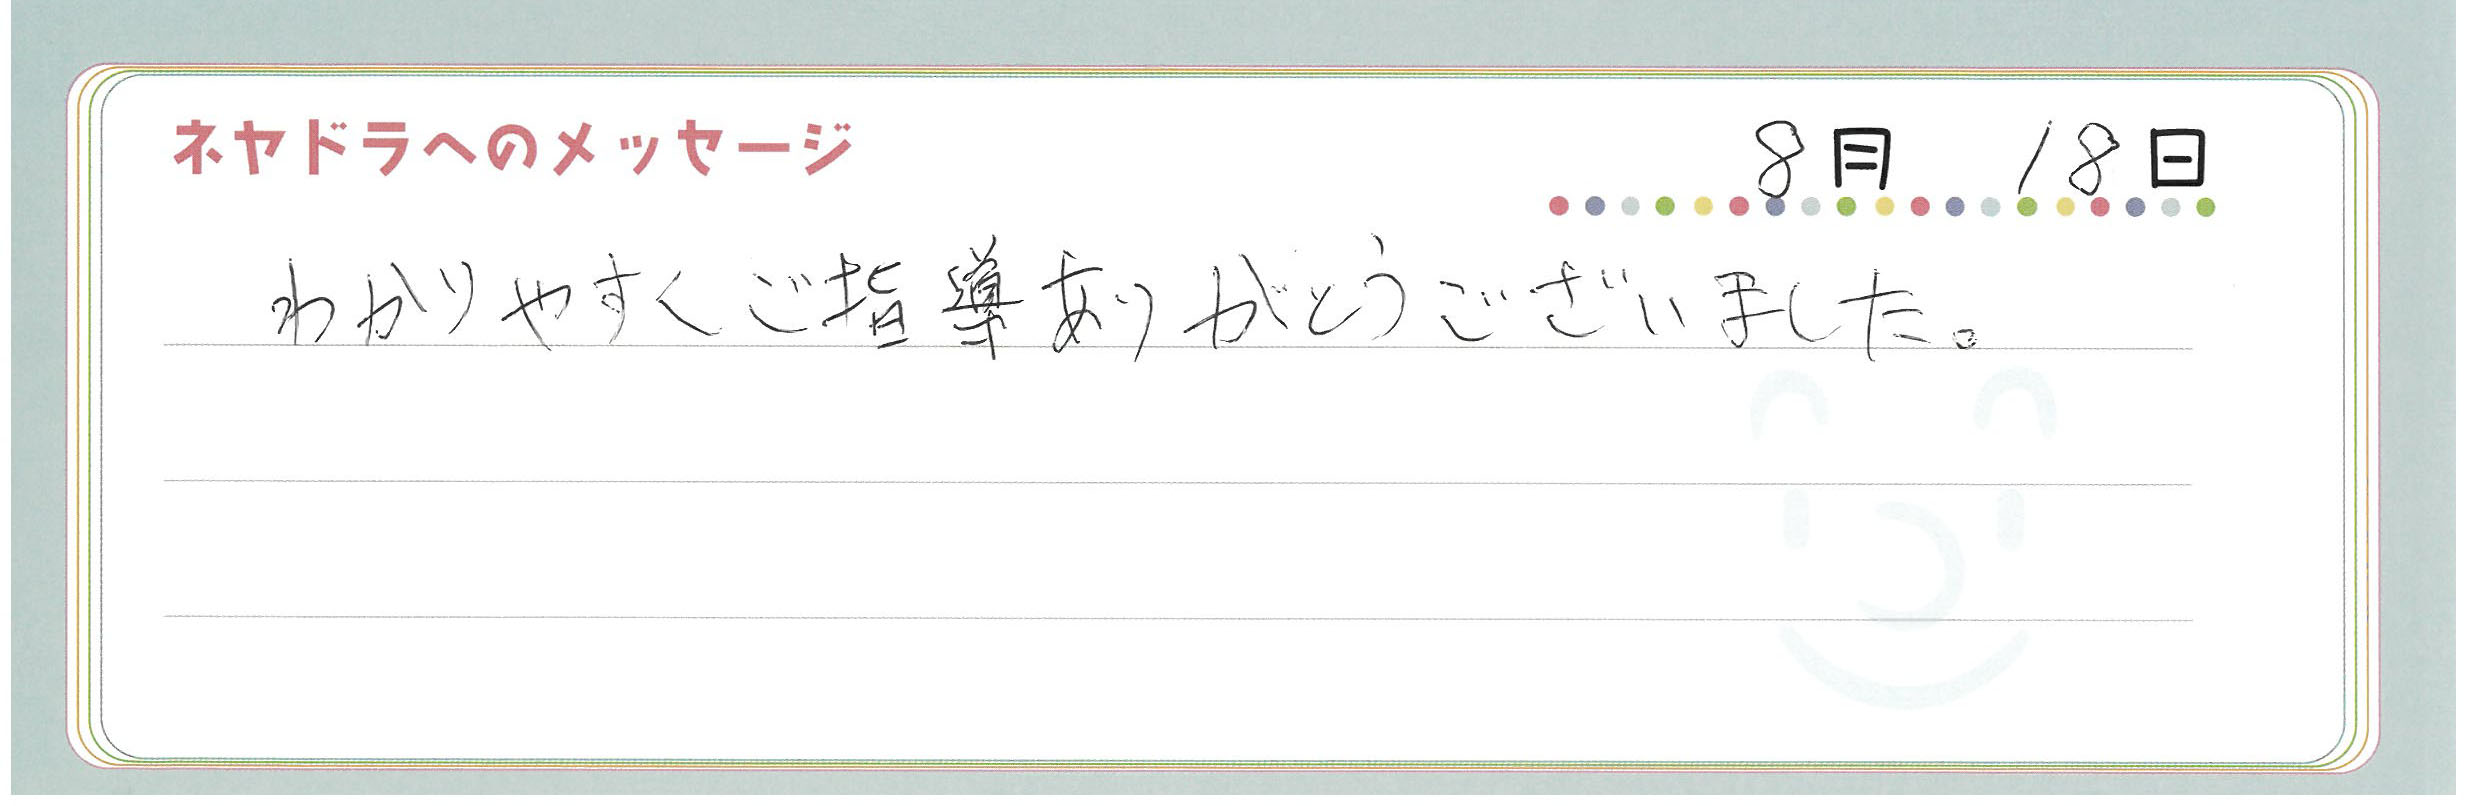 ネヤドラへのメッセージ
8月 18日
わかりやすくご指導ありがとうございました。